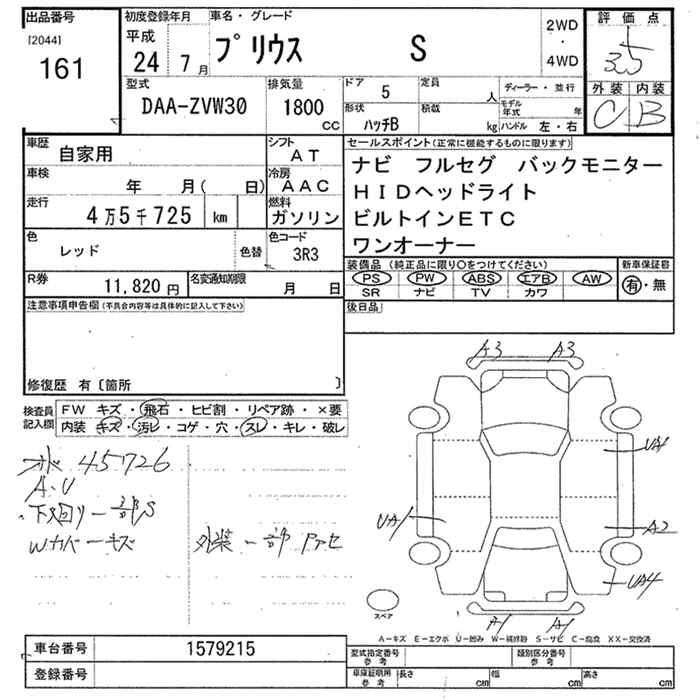 出品番号
[2044]
161
初度登録年月
平成
24 7月
車名・グレード
プリウス S
2WD
・
4WD
評価点
3.5
外装 内装
C B
型式
DAA-ZVW30
排気量
1800
CC
ドア 5
形状 ハッチB
定員 人
積載 kg
ディーラー・並行
モデル年式 年
ハンドル 左・右
車歴 自家用
シフト AT
車検 年 月( 日)
冷房 AAC
走行 4万5千725 km
燃料 ガソリン
色 レッド
色替
色コード 3R3
R券 11,820円
名変通知期限 月 日
セールスポイント(正常に機能するものに限ります)
ナビ フルセグ バックモニター
HIDヘッドライト
ビルトインETC
ワンオーナー
装備品 (純正品に限り○をつけてください)
PS PW ABS エアB AW
SR ナビ TV カワ
新車保証書
有・無
後日品
注意事項申告欄(不具合内容等は具体的に記入して下さい)
修復歴 有〔箇所 〕
検査員記入欄
FW キズ・飛石・ヒビ割・リペア跡・×要
内装 キズ・汚レ・コゲ・穴・スレ・キレ・破レ
45726
A・U
下回リ一部S
Wカバーキズ
外装一部
A3 A3
UA1
A2
UA4
UA1
A1 A1
スペア
A-キズ E-エクボ U-凹み W-補修跡 S-サビ C-腐食 XX-交換済
車台番号 1579215
登録番号
型式指定番号
参考
類別区分番号
参考
車庫証明用
参考
長さ cm 幅 cm 高さ cm